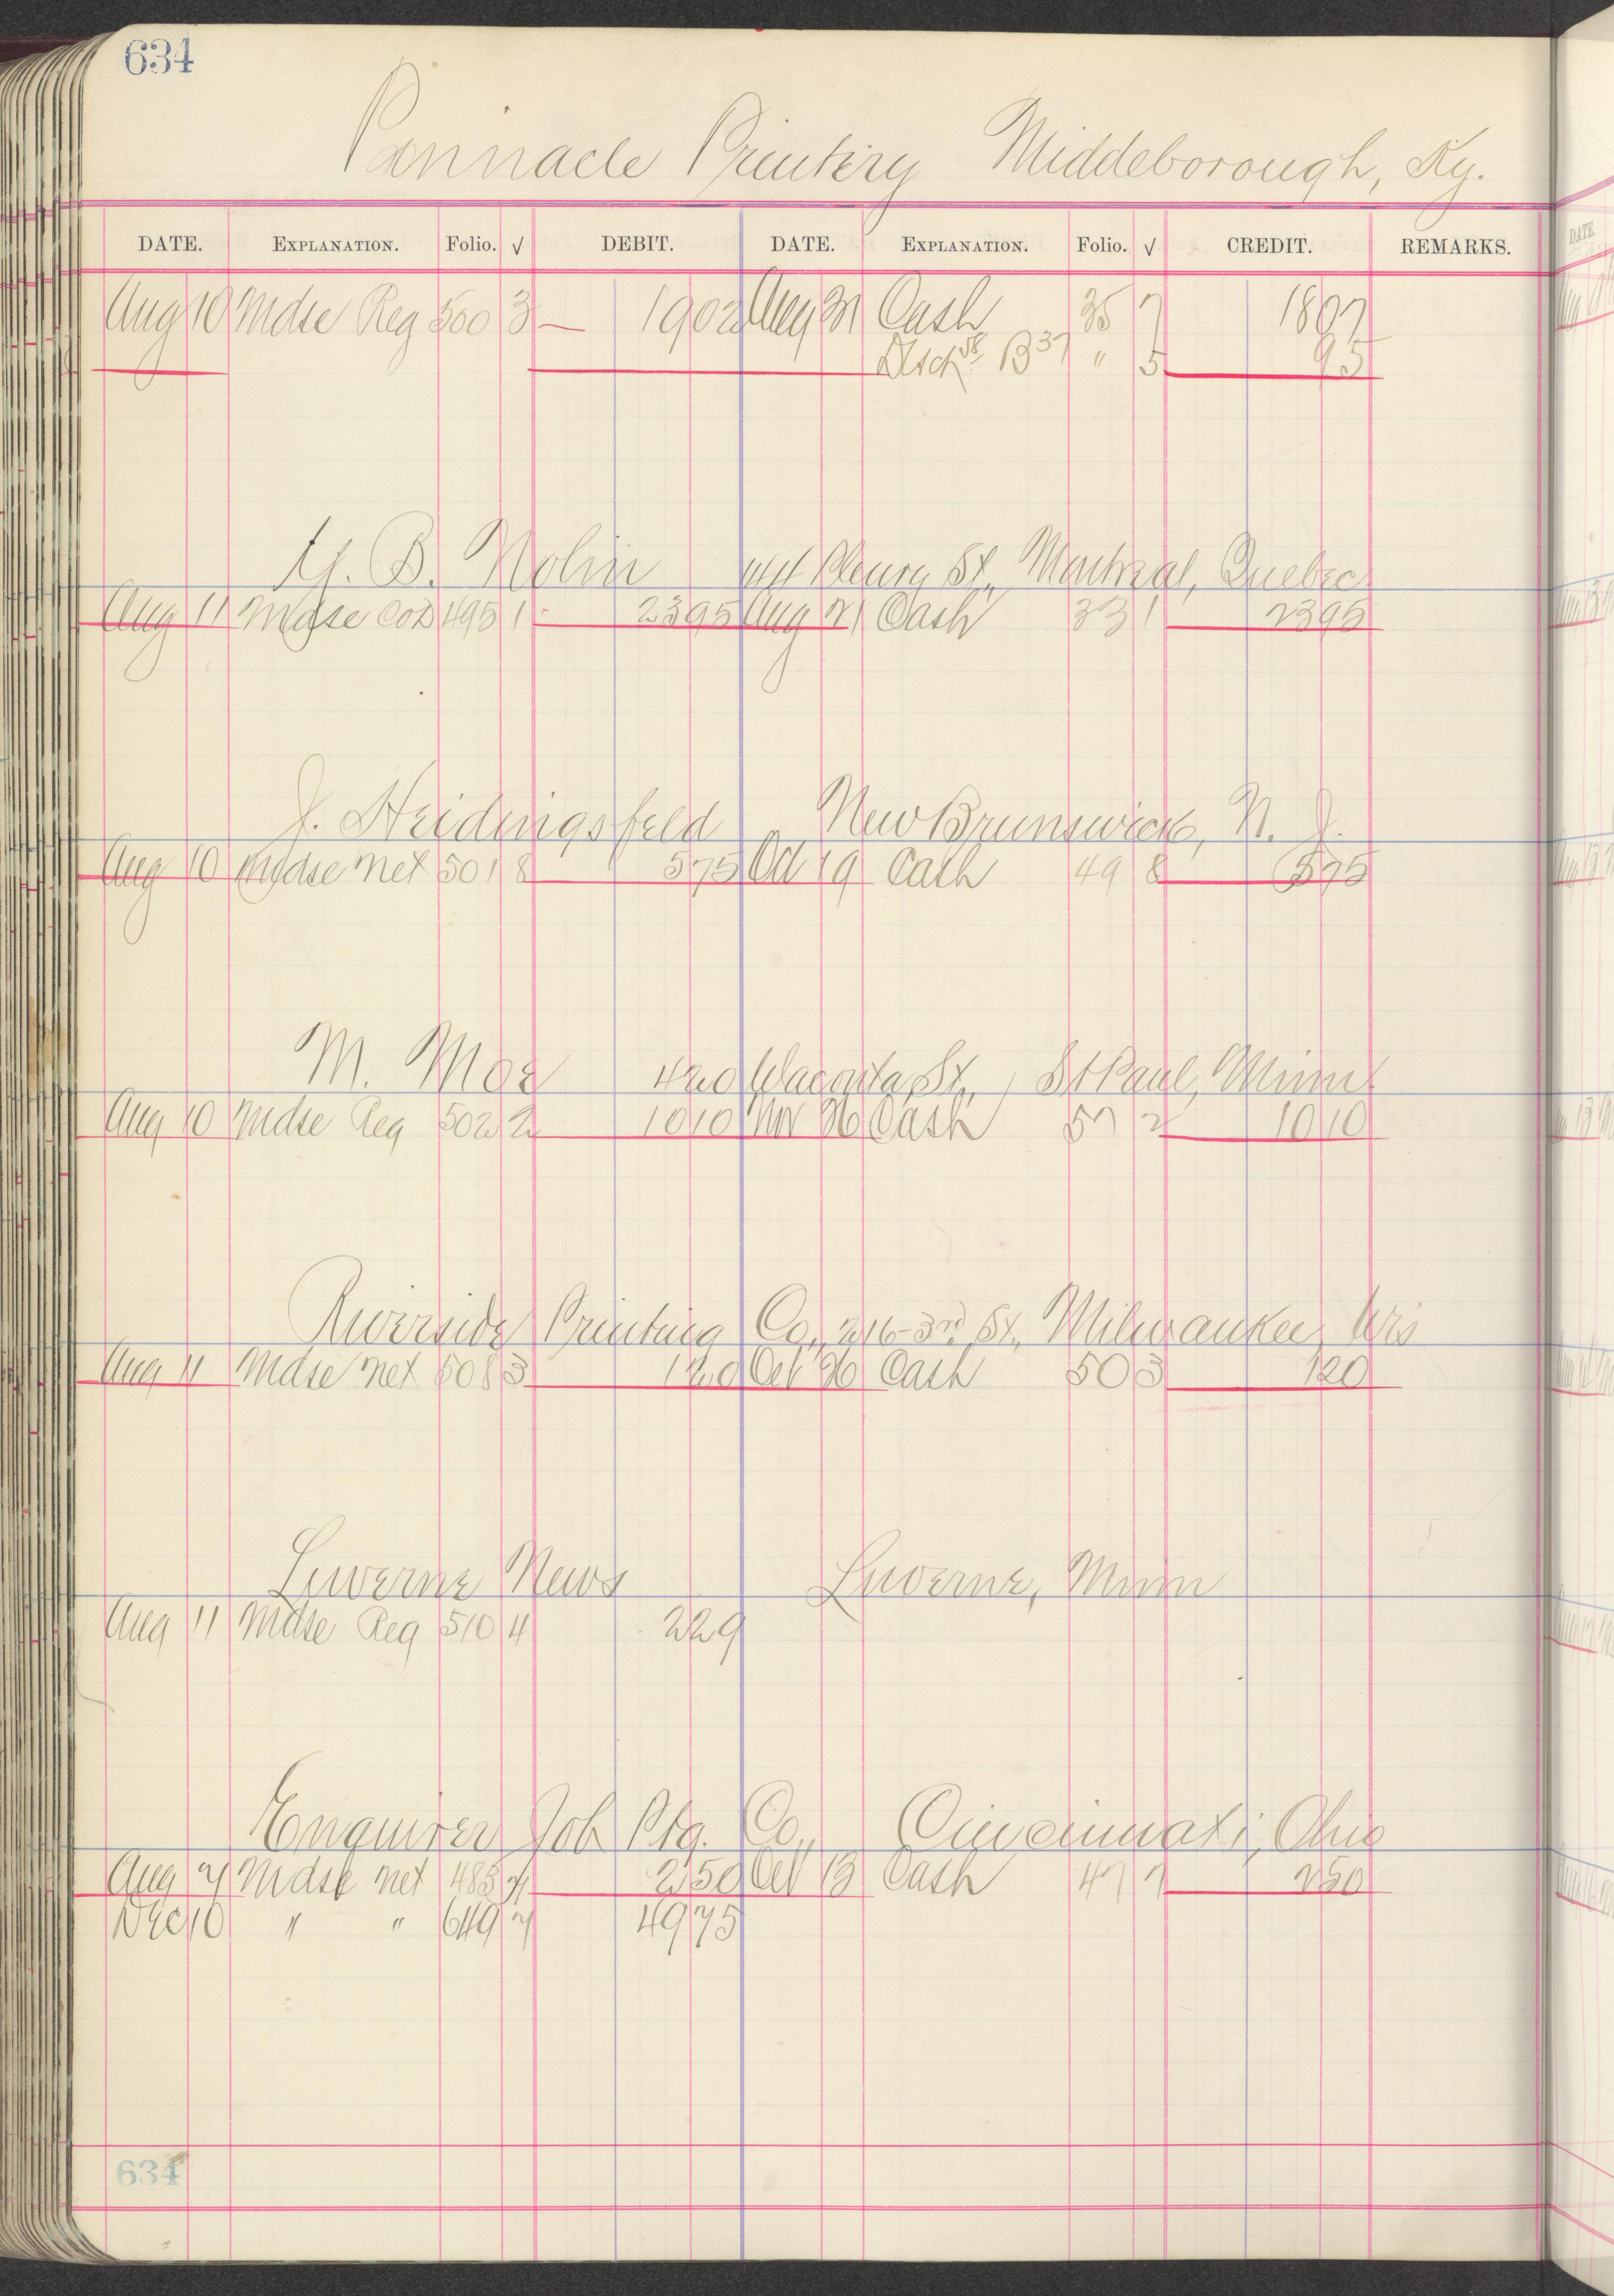 634
Pinnacle Printery Middeborough, Ky.
DATE. EXPLANATION. Folio. √ DEBIT. DATE. EXPLANATION. Folio. √ CREDIT. REMARKS.
Aug 10 Mdse Reg 500 3 — 1902 Aug 31 Cash 35 7 1807
B37 " 5 95
B. Nolin St., Montreal, Quebec
Aug 11 Mdse COD 495 1 - 2395 Aug 21 Cash 33 1 2395
J. Heidingsfeld New Brunswick, N. J.
Aug 10 Mdse net 501 8 575 Oct 19 Cash 49 8 575
M. Moe 420 Wacouta St., St Paul, Minn.
Aug 10 Mdse Reg 502 2 1010 Nov 26 Cash 57 2 1010
Riverside Printing Co., 216-3rd St., Milwaukee, Wis
Aug 11 Mdse net 508 3 120 Oct 26 Cash 50 3 120
Luverne News Luverne, Minn
Aug 11 Mdse Reg 510 4 229
Enquirer Job Ptg. Co., Cincinnati, Ohio
Aug 7 Mdse net 485 7 250 Oct 13 Cash 47 7 250
Dec 10 " " 649 7 4975
634